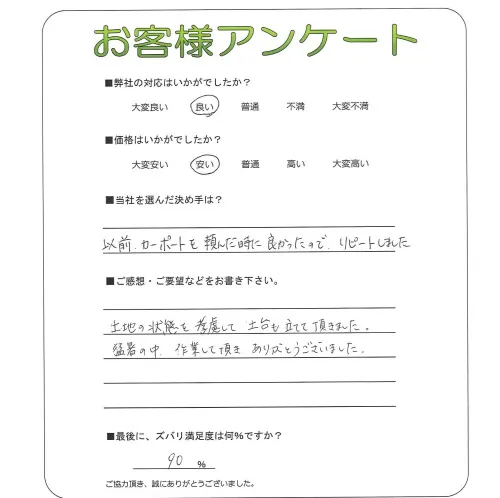 お客様アンケート
■弊社の対応はいかがでしたか？
大変良い 良い 普通 不満 大変不満
■価格はいかがでしたか？
大変安い 安い 普通 高い 大変高い
■当社を選んだ決め手は？
以前、カーポートを頼んだ時に良かったので、リピートしました
■ご感想・ご要望などをお書き下さい。
土地の状態を考慮して 土台も立てて頂きました。
猛暑の中、作業して頂き ありがとうございました。
■最後に、ズバリ満足度は何％ですか？
90 ％
ご協力頂き、誠にありがとうございました。